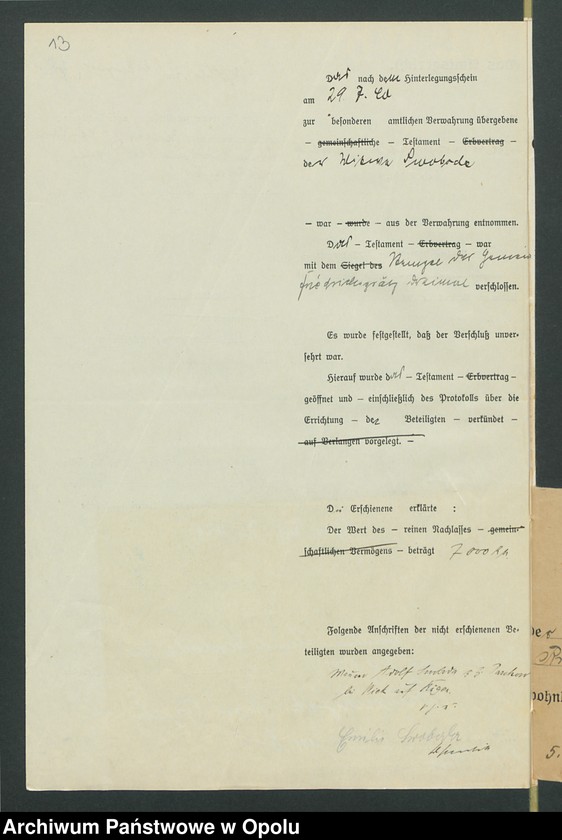 13
Das nach dem Hinterlegungsschein
am 29. 7. 40
zur besonderen amtlichen Verwahrung übergebene
– gemeinschaftliche – Testament – Erbvertrag –
der Witwe Swoboda
– war – wurde – aus der Verwahrung entnommen.
Das – Testament – Erbvertrag – war
mit dem Siegel des Stempel der Gemein
Friedrichsgrätz dreimal verschlossen.
Es wurde festgestellt, daß der Verschluß unver-
sehrt war.
Hierauf wurde das – Testament – Erbvertrag –
geöffnet und – einschließlich des Protokolls über die
Errichtung – den Beteiligten – verkündet –
auf Verlangen vorgelegt. –
D.. Erschienene erklärte :
Der Wert des – reinen Nachlasses – gemein-
schaftlichen Vermögens – beträgt 7000
Folgende Anschriften der nicht erschienenen Be-
teiligten wurden angegeben:
Adolf
Emilie Swoboda
5.
Archiwum Państwowe w Opolu